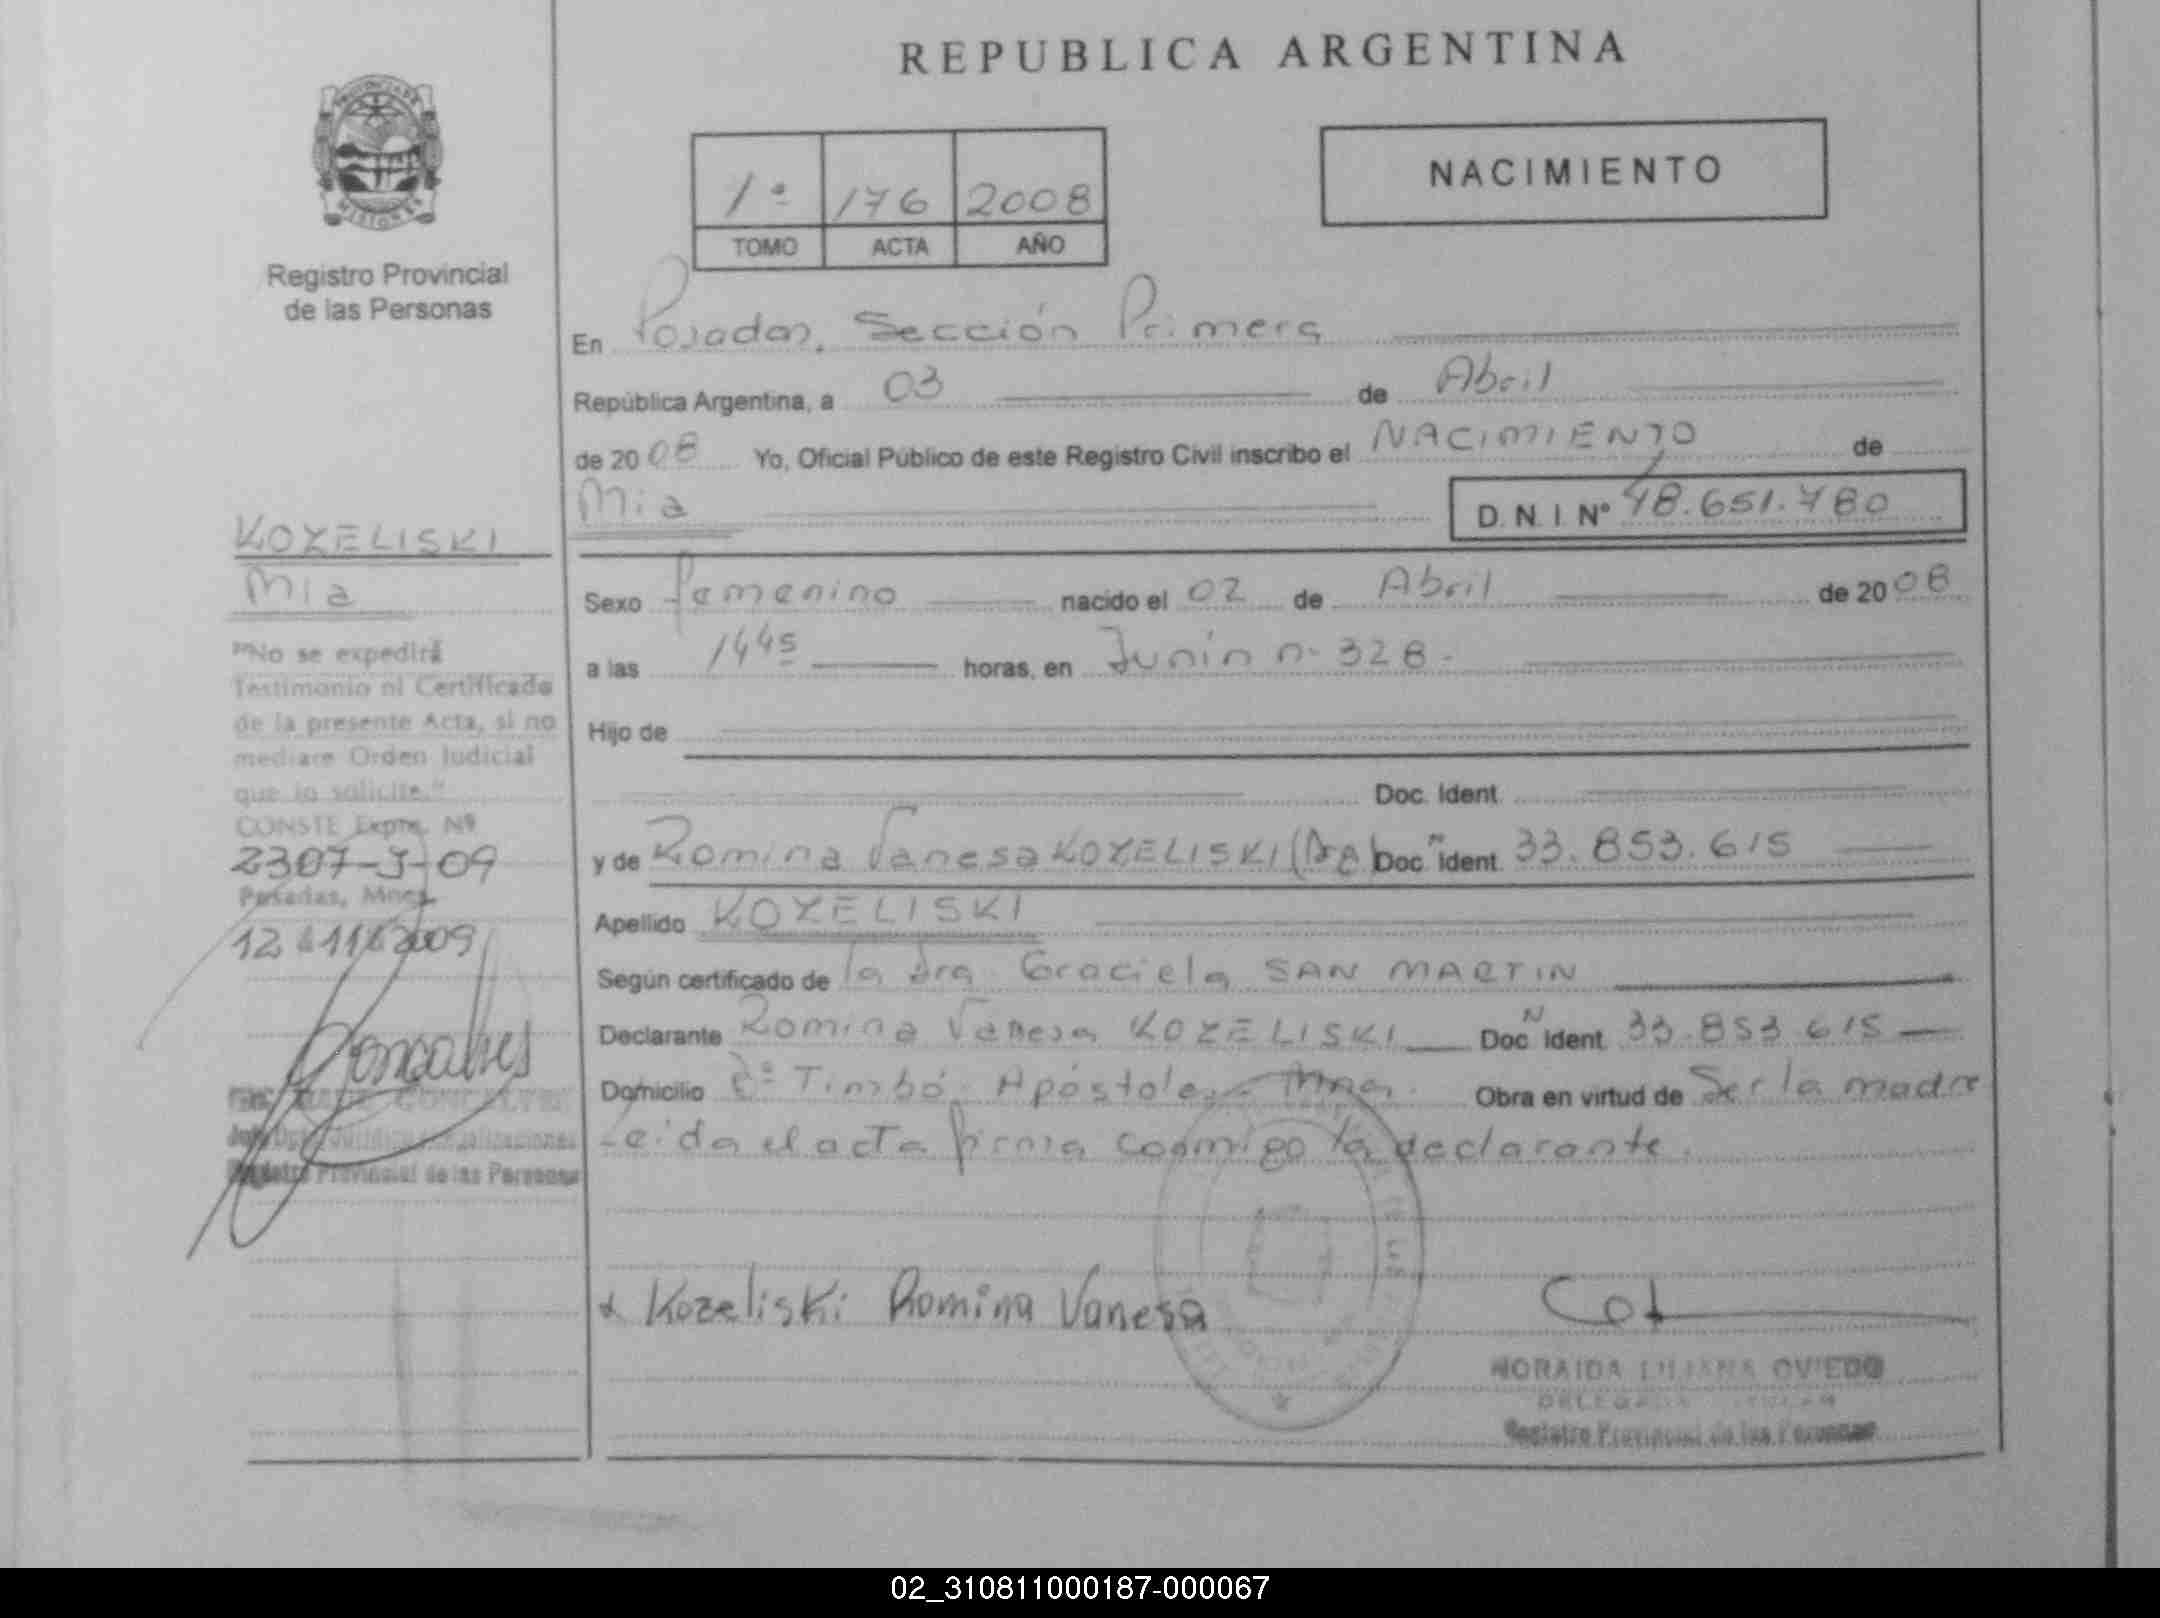 REPUBLICA ARGENTINA
PROVINCIA DE
MISIONES
Registro Provincial
de las Personas
1ª 176 2008
TOMO ACTA AÑO
NACIMIENTO
En Posadas, Sección Primera
República Argentina, a 03 de Abril
de 2008 Yo, Oficial Público de este Registro Civil inscribo el NACIMIENTO de
Mia D. N. I. Nº 48.651.780
KOZELISKI
Mia
Sexo femenino nacido el 02 de Abril de 2008
a las 1445 horas, en Junín n° 328.
Hijo de
Doc. Ident.
y de Romina Vanesa KOZELISKI Doc. N Ident. 33.853.615
Apellido KOZELISKI
Según certificado de la dra. Graciela SAN MARTIN
Declarante Romina Vanesa KOZELISKI Doc. N Ident. 33.853.615
Domicilio Timbó. Apóstoles - Mnes. Obra en virtud de Ser la madre
Leida el acta firma conmigo la declarante.
"No se expedirá
Testimonio ni Certificado
de la presente Acta, si no
mediare Orden Judicial
que lo solicite."
CONSTE Expte. Nº
2307-J-09
Posadas, Mnes.
12 11 2009
Goncalves
GONCALVES
Registro Provincial de las Personas
Kozeliski Romina Vanesa
NORAIDA LILIANA OVIEDO
DELEGADA TITULAR
Registro Provincial de las Personas
02_310811000187-000067